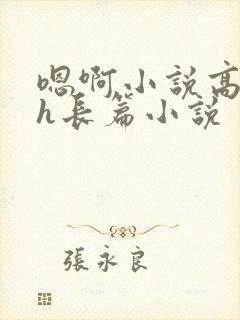 嗯啊小説高
h長篇小説
張永良